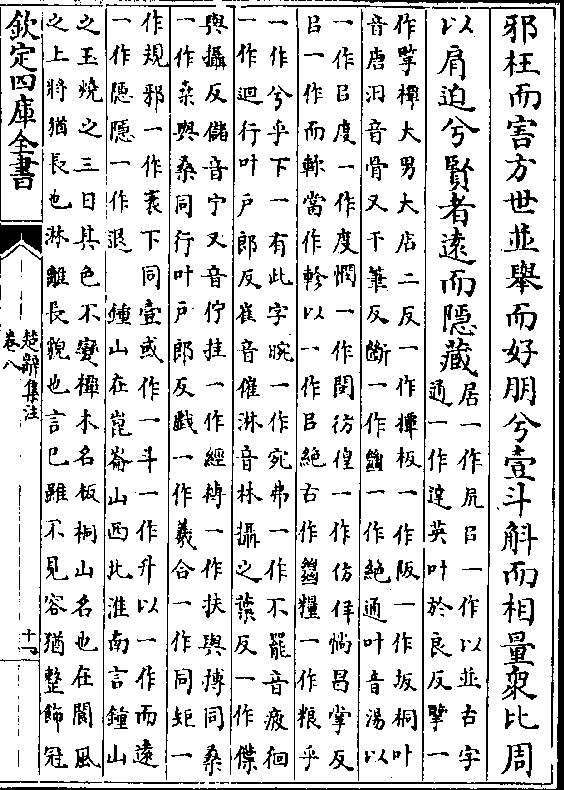 邪枉而害方世並舉而好朋兮壹斗斛而相量衆比周
以肩迫兮賢者遠而隱藏
居一作凥㠯一作以並古字
通一作達英叶於良反擥一
作擥橝大男大店二反一作橝板一作阪一作坂桐叶
音唐汩音骨又于筆反斷一作㡭一作絶通叶音湯以
一作㠯度一作度惘一作罔彷徨一作仿佯惝昌掌反
㠯一作而軫當作軫以一作㠯絶古作㡭糧一作粮乎
一作兮乎下一有此字晼一作宛弗一作不罷音疲徊
一作迴行叶戶郎反崔音催淋音林攝之葉反一作僷
與攝反儲音宁又音佇挂一作絓榑一作扶與摶同桑
一作桒與桑同行叶戶郎反戲一作羲合一作同矩一
作規邪一作衺下同壹或作一斗一作升以一作而遠
一作隠隱一作退　鍾山在崑崙山西北淮南言鍾山
之玉燒之三日其色不變橝木名板桐山名也在閬風
之上將猶長也淋離長貌也言已雖不見容猶整飾冠
欽定四庫全書
楚辭集注
卷八
十一